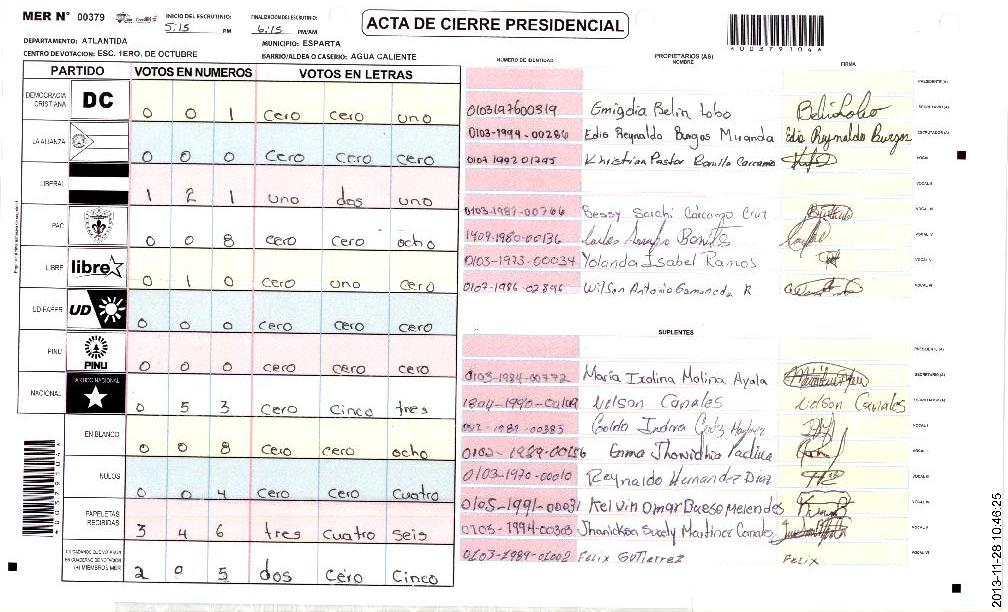 MER N° 00379
INICIO DEL ESCRUTINIO:
5:15 PM
FINALIZACION DEL ESCRUTINIO:
6:15 PM/AM
ACTA DE CIERRE PRESIDENCIAL
A003791044
DEPARTAMENTO: ATLANTIDA
MUNICIPIO: ESPARTA
CENTRO DE VOTACION: ESC. 1ERO. DE OCTUBRE
BARRIO/ALDEA O CASERIO: AGUA CALIENTE
PARTIDO VOTOS EN NUMEROS VOTOS EN LETRAS
DEMOCRACIA CRISTIANA DC 0 0 1 cero cero uno
LA ALIANZA 0 0 0 cero cero cero
LIBERAL 1 2 1 uno dos uno
PAC 0 0 8 cero cero ocho
LIBRE libre 0 1 0 cero uno cero
UD-FAPER UD 0 0 0 cero cero cero
PINU PINU 0 0 0 cero cero cero
NACIONAL PARTIDO NACIONAL 0 5 3 cero cinco tres
EN BLANCO 0 0 8 cero cero ocho
NULOS 0 0 4 cero cero cuatro
PAPELETAS RECIBIDAS 3 4 6 tres cuatro seis
CIUDADANOS QUE VOTARON EN CUADERNO DE VOTACION (+) MIEMBROS MER 2 0 5 dos cero cinco
NUMERO DE IDENTIDAD
PROPIETARIOS (AS)
NOMBRE
FIRMA
PRESIDENTE (A)
0103197600319 Emigdia Belin Lobo Beli Lobo SECRETARIO (A)
0103-1994-00286 Edis Reynaldo Burgos Miranda Edis Reynaldo Burgos ESCRUTADOR (A)
0107 1992 01295 Khristian Pastor Bonilla Carcamo VOCAL I
VOCAL II
0103-1987-00766 Bessy Sarahi Cárcamo Cruz VOCAL III
1409-1980-00136 Carlos Bonilla VOCAL IV
0103-1973-00034 Yolanda Isabel Ramos VOCAL V
0107-1986-02896 Wilson Antonio R VOCAL VI
SUPLENTES
PRESIDENTE (A)
0103-1984-00772 Maria Ixolina Molina Ayala SECRETARIO (A)
1804-1990- Nelson Canales Nelson Canales ESCRUTADOR (A)
1989-00383 Indira VOCAL I
0102-1989-00156 Enma VOCAL II
0103-1970-00010 Reynaldo Hernandez Diaz VOCAL III
0105-1991-00031 Kelvin Omar Bueso Melendes VOCAL IV
0103-1994-00303 Suely Martinez Canales VOCAL V
0103-1989-01002 Felix Gutierrez Felix VOCAL VI
2013-11-28 10:46:25